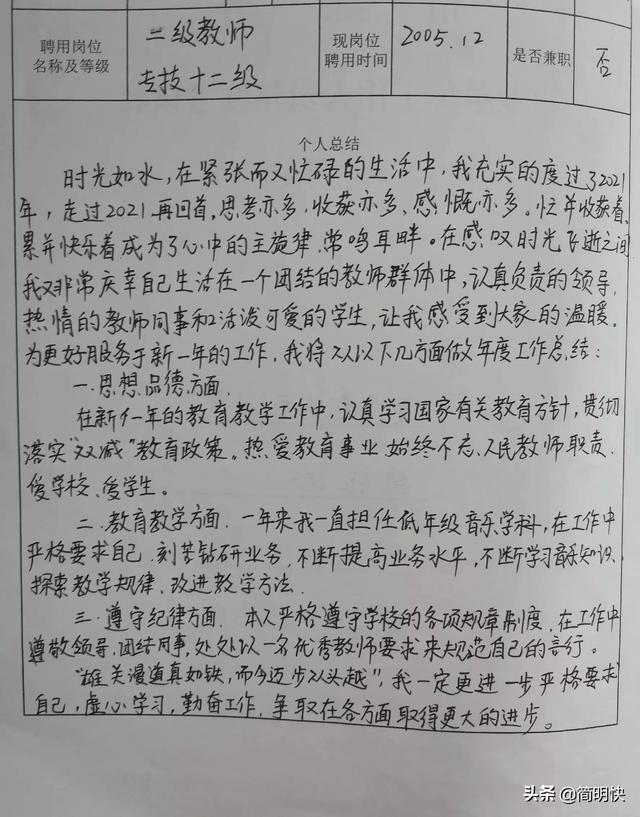 聘用岗位
名称及等级
二级教师
专技十二级
现岗位
聘用时间
2005.12
是否兼职
否
个人总结
时光如水,在紧张而又忙碌的生活中,我充实的度过了2021
年,走过2021再回首,思考亦多,收获亦多、感慨亦多。忙并收获着,
累并快乐着成为了心中的主旋律,常鸣耳畔。在感叹时光飞逝之间
我又非常庆幸自己生活在一个团结的教师群体中,认真负责的领导,
热情的教师同事和活泼可爱的学生,让我感受到大家的温暖。
为更好服务于新一年的工作,我将从以下几方面做年度工作总结:
一.思想品德方面.
在新的一年的教育教学工作中,认真学习国家有关教育方针,贯彻
落实“双减”教育政策。热爱教育事业 始终不忘人民教师职责.
爱学校、爱学生。
二.教育教学方面. 一年来我一直担任低年级音乐学科,在工作中
严格要求自己.刻苦钻研业务,不断提高业务水平,不断学习音乐知识,
探索教学规律.改进教学方法.
三.遵守纪律方面. 本人严格遵守学校的各项规章制度.在工作中
尊敬领导.团结同事,处处以一名优秀教师要求来规范自己的言行。
“雄关漫道真如铁,而今迈步从头越”,我一定更进一步严格要求
自己,虚心学习,勤奋工作,争取在各方面取得更大的进步。
头条 @简明快